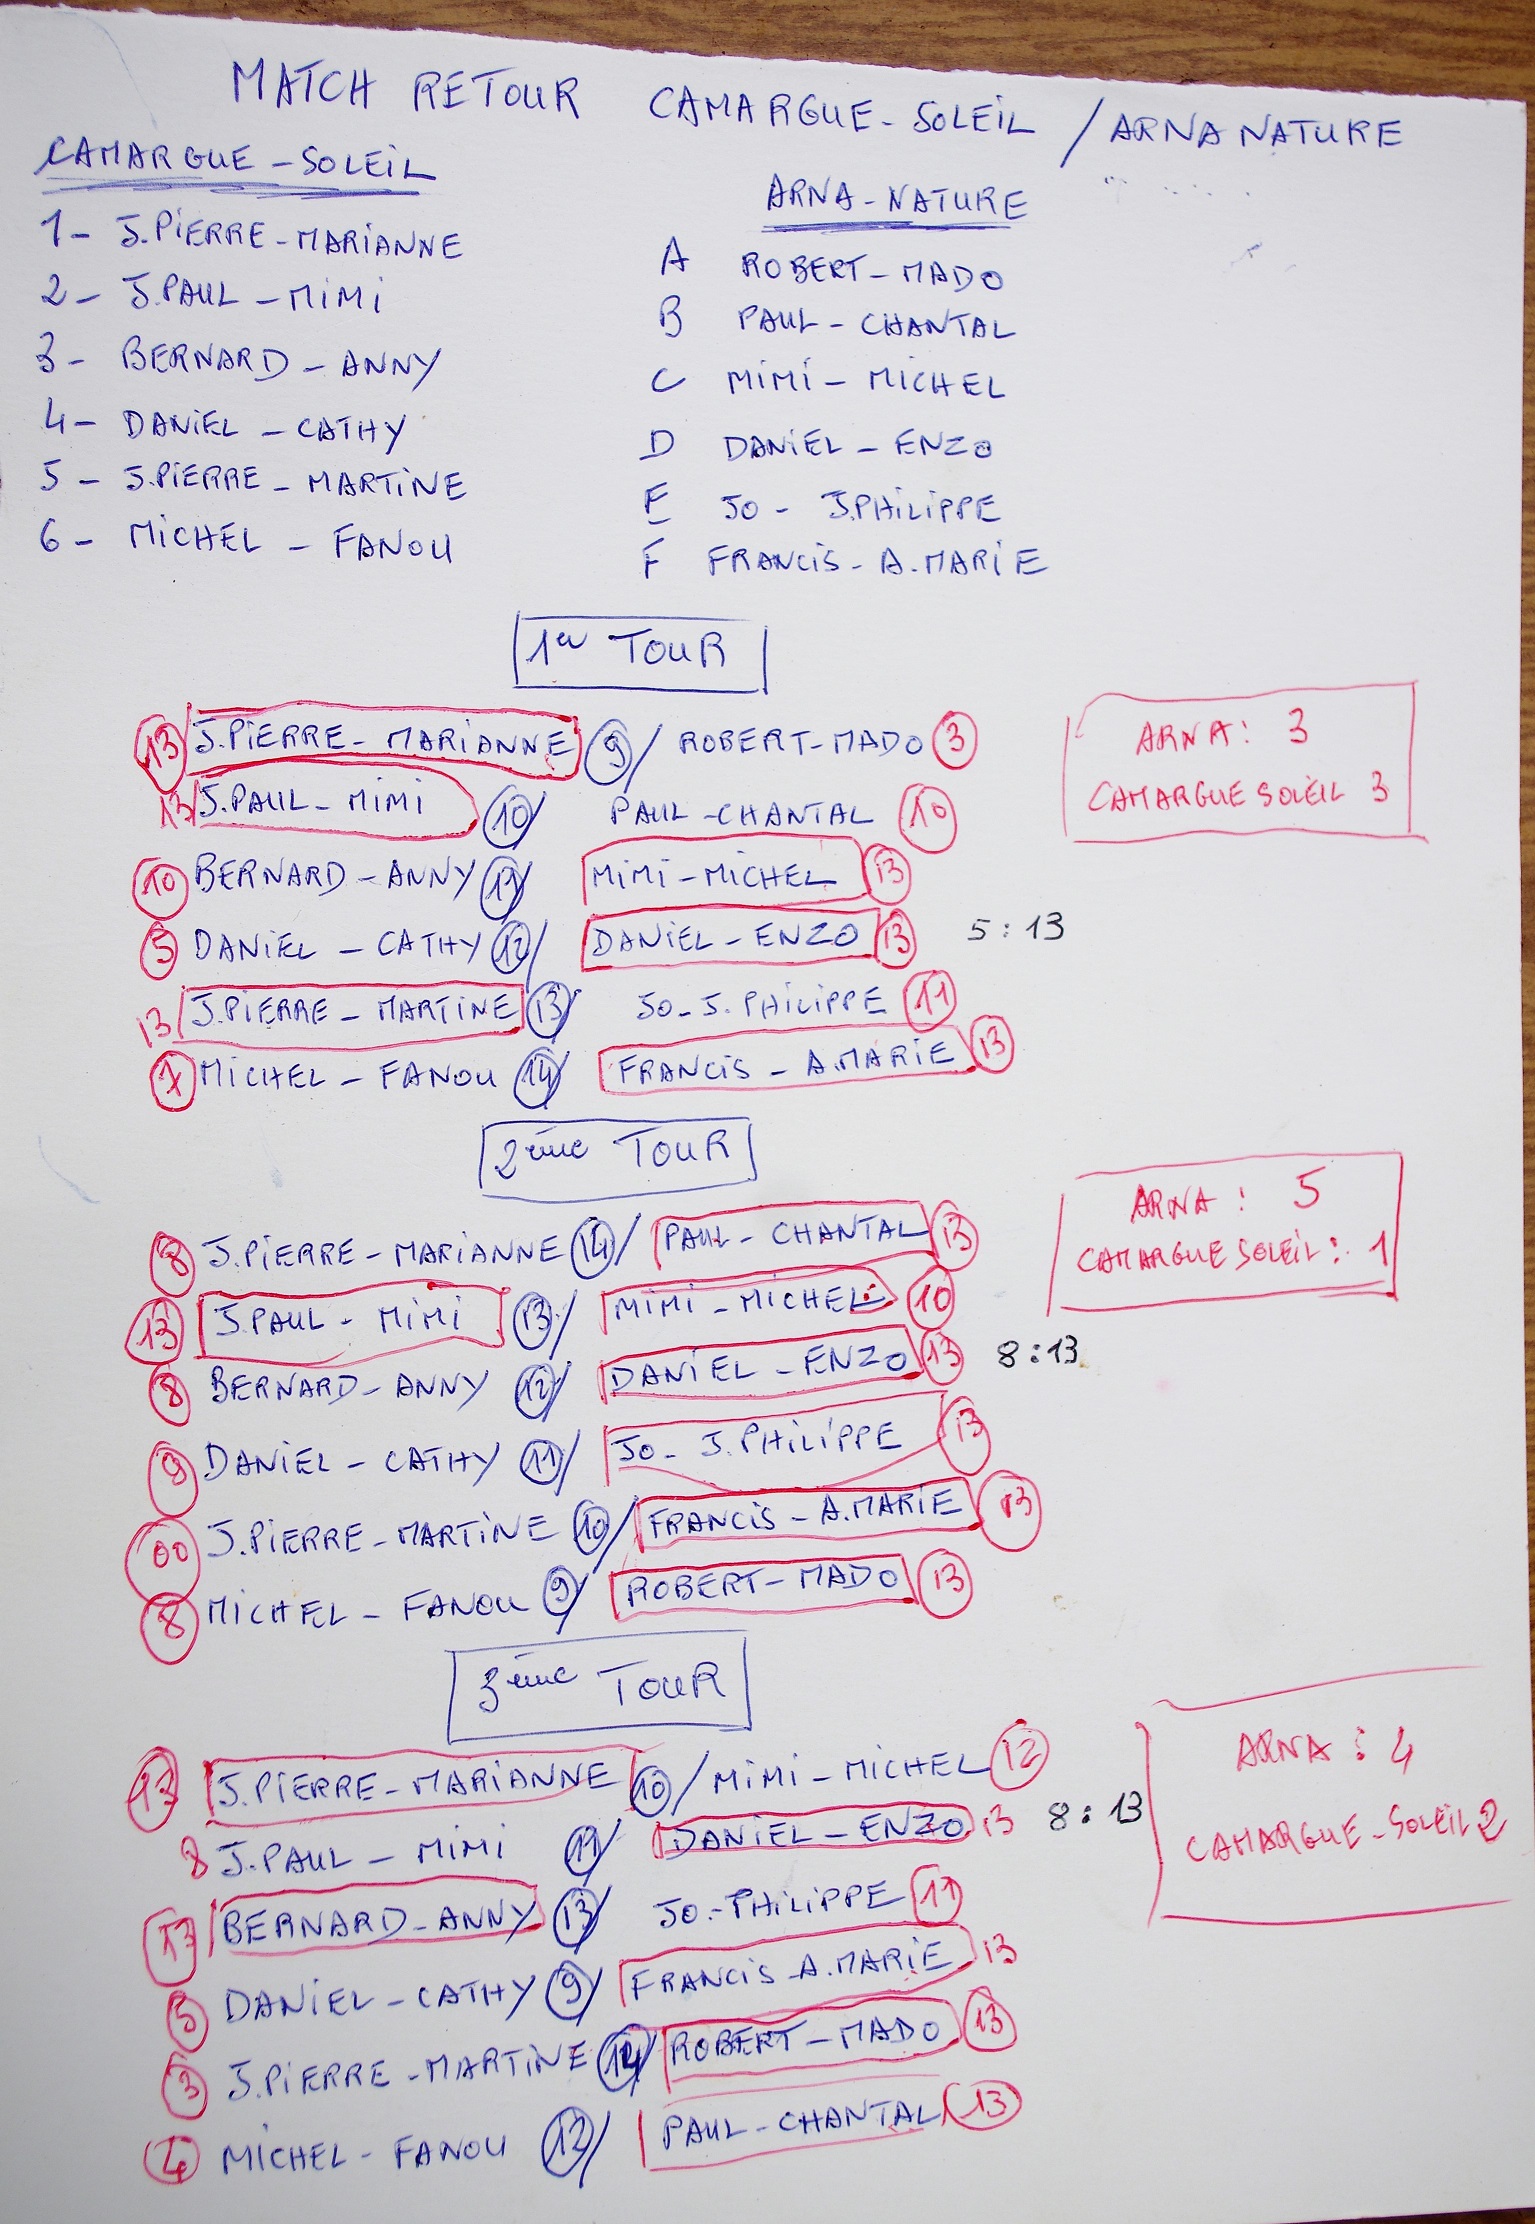 MATCH RETOUR CAMARGUE-SOLEIL / ARNA NATURE
CAMARGUE-SOLEIL
1- J.PIERRE-MARIANNE
2- J.PAUL-MIMI
3- BERNARD-ANNY
4- DANIEL-CATHY
5- J.PIERRE-MARTINE
6- MICHEL-FANOU
ARNA-NATURE
A ROBERT-MADO
B PAUL-CHANTAL
C MIMI-MICHEL
D DANIEL-ENZO
E JO- J.PHILIPPE
F FRANCIS-A.MARIE
1er TOUR
13 J.PIERRE-MARIANNE 9 / ROBERT-MADO 3
13 J.PAUL-MIMI 10 / PAUL-CHANTAL 10
10 BERNARD-ANNY 11 / MIMI-MICHEL 13
5 DANIEL-CATHY 12 / DANIEL-ENZO 13 5:13
13 J.PIERRE-MARTINE 13 / JO-J.PHILIPPE 11
7 MICHEL-FANOU 14 / FRANCIS-A.MARIE 13
ARNA: 3
CAMARGUE SOLEIL 3
2ème TOUR
8 J.PIERRE-MARIANNE 14 / PAUL-CHANTAL 13
13 J.PAUL-MIMI 13 / MIMI-MICHEL 10
8 BERNARD-ANNY 12 / DANIEL-ENZO 13 8:13
9 DANIEL-CATHY 11 / JO-J.PHILIPPE 13
00 J.PIERRE-MARTINE 10 / FRANCIS-A.MARIE 13
8 MICHEL-FANOU 9 / ROBERT-MADO 13
ARNA: 5
CAMARGUE SOLEIL: 1
3ème TOUR
13 J.PIERRE-MARIANNE 10 / MIMI-MICHEL 12
8 J.PAUL-MIMI 11 / DANIEL-ENZO 13 8:13
13 BERNARD-ANNY 13 / JO-PHILIPPE 11
5 DANIEL-CATHY 9 / FRANCIS-A.MARIE 13
3 J.PIERRE-MARTINE / ROBERT-MADO 13
4 MICHEL-FANOU 12 / PAUL-CHANTAL 13
ARNA: 4
CAMARGUE-SOLEIL 2